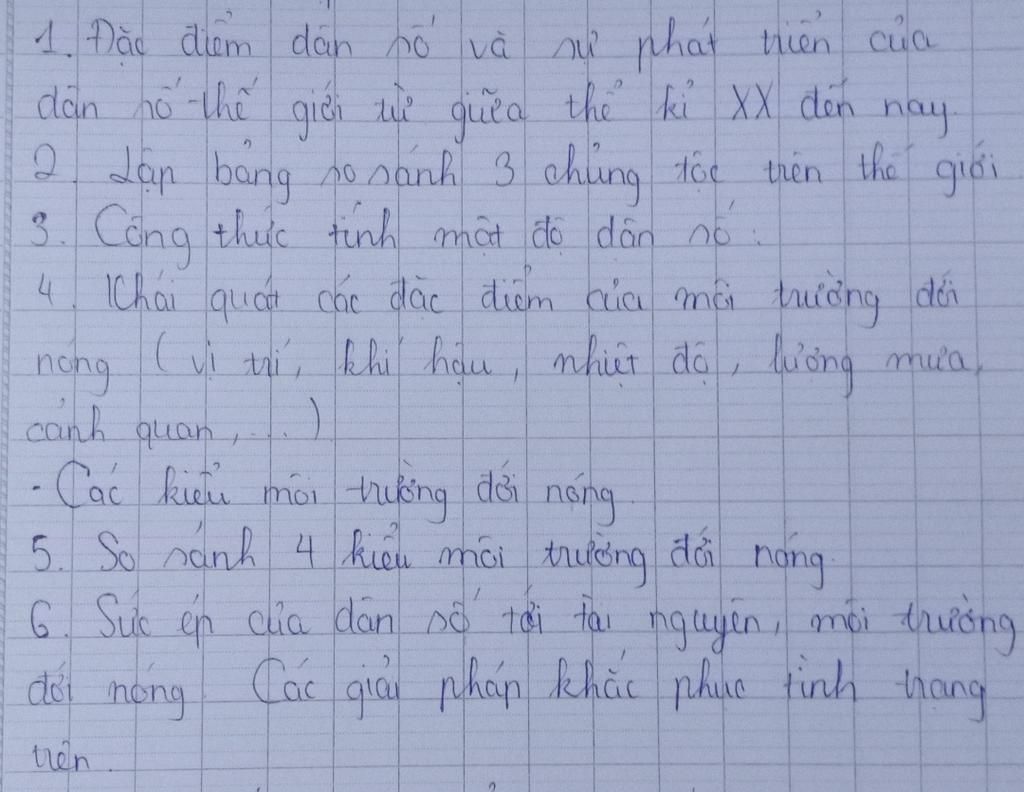 1. Đặc điểm dân số và sự phát triển của
dân số thế giới từ giữa thế kỉ XX đến nay.
2. Lập bảng so sánh 3 chủng tộc trên thế giới
3. Công thức tính mật độ dân số.
4. Khái quát các đặc điểm của môi trường đới
nóng (vị trí, khí hậu, nhiệt độ, lượng mưa,
cảnh quan, ...)
- Các kiểu môi trường đới nóng.
5. So sánh 4 kiểu môi trường đới nóng.
6. Sức ép của dân số tới tài nguyên, môi trường
đới nóng. Các giải pháp khắc phục tình trạng
trên.